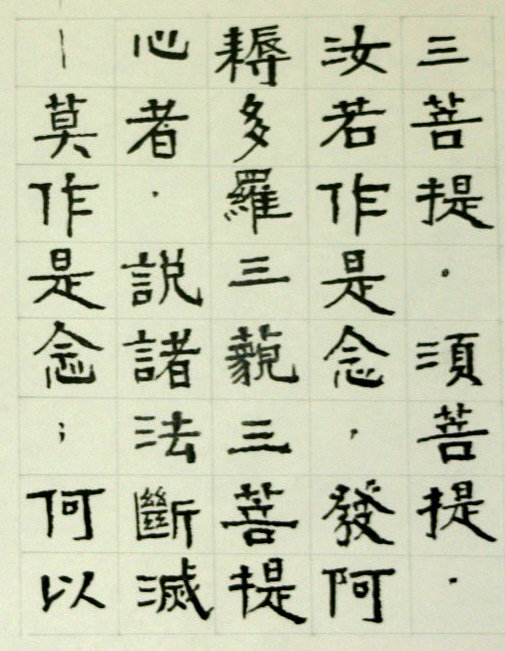 三菩提．須菩提．
汝若作是念，發阿
耨多羅三藐三菩提
心者．説諸法斷滅
｜莫作是念；何以